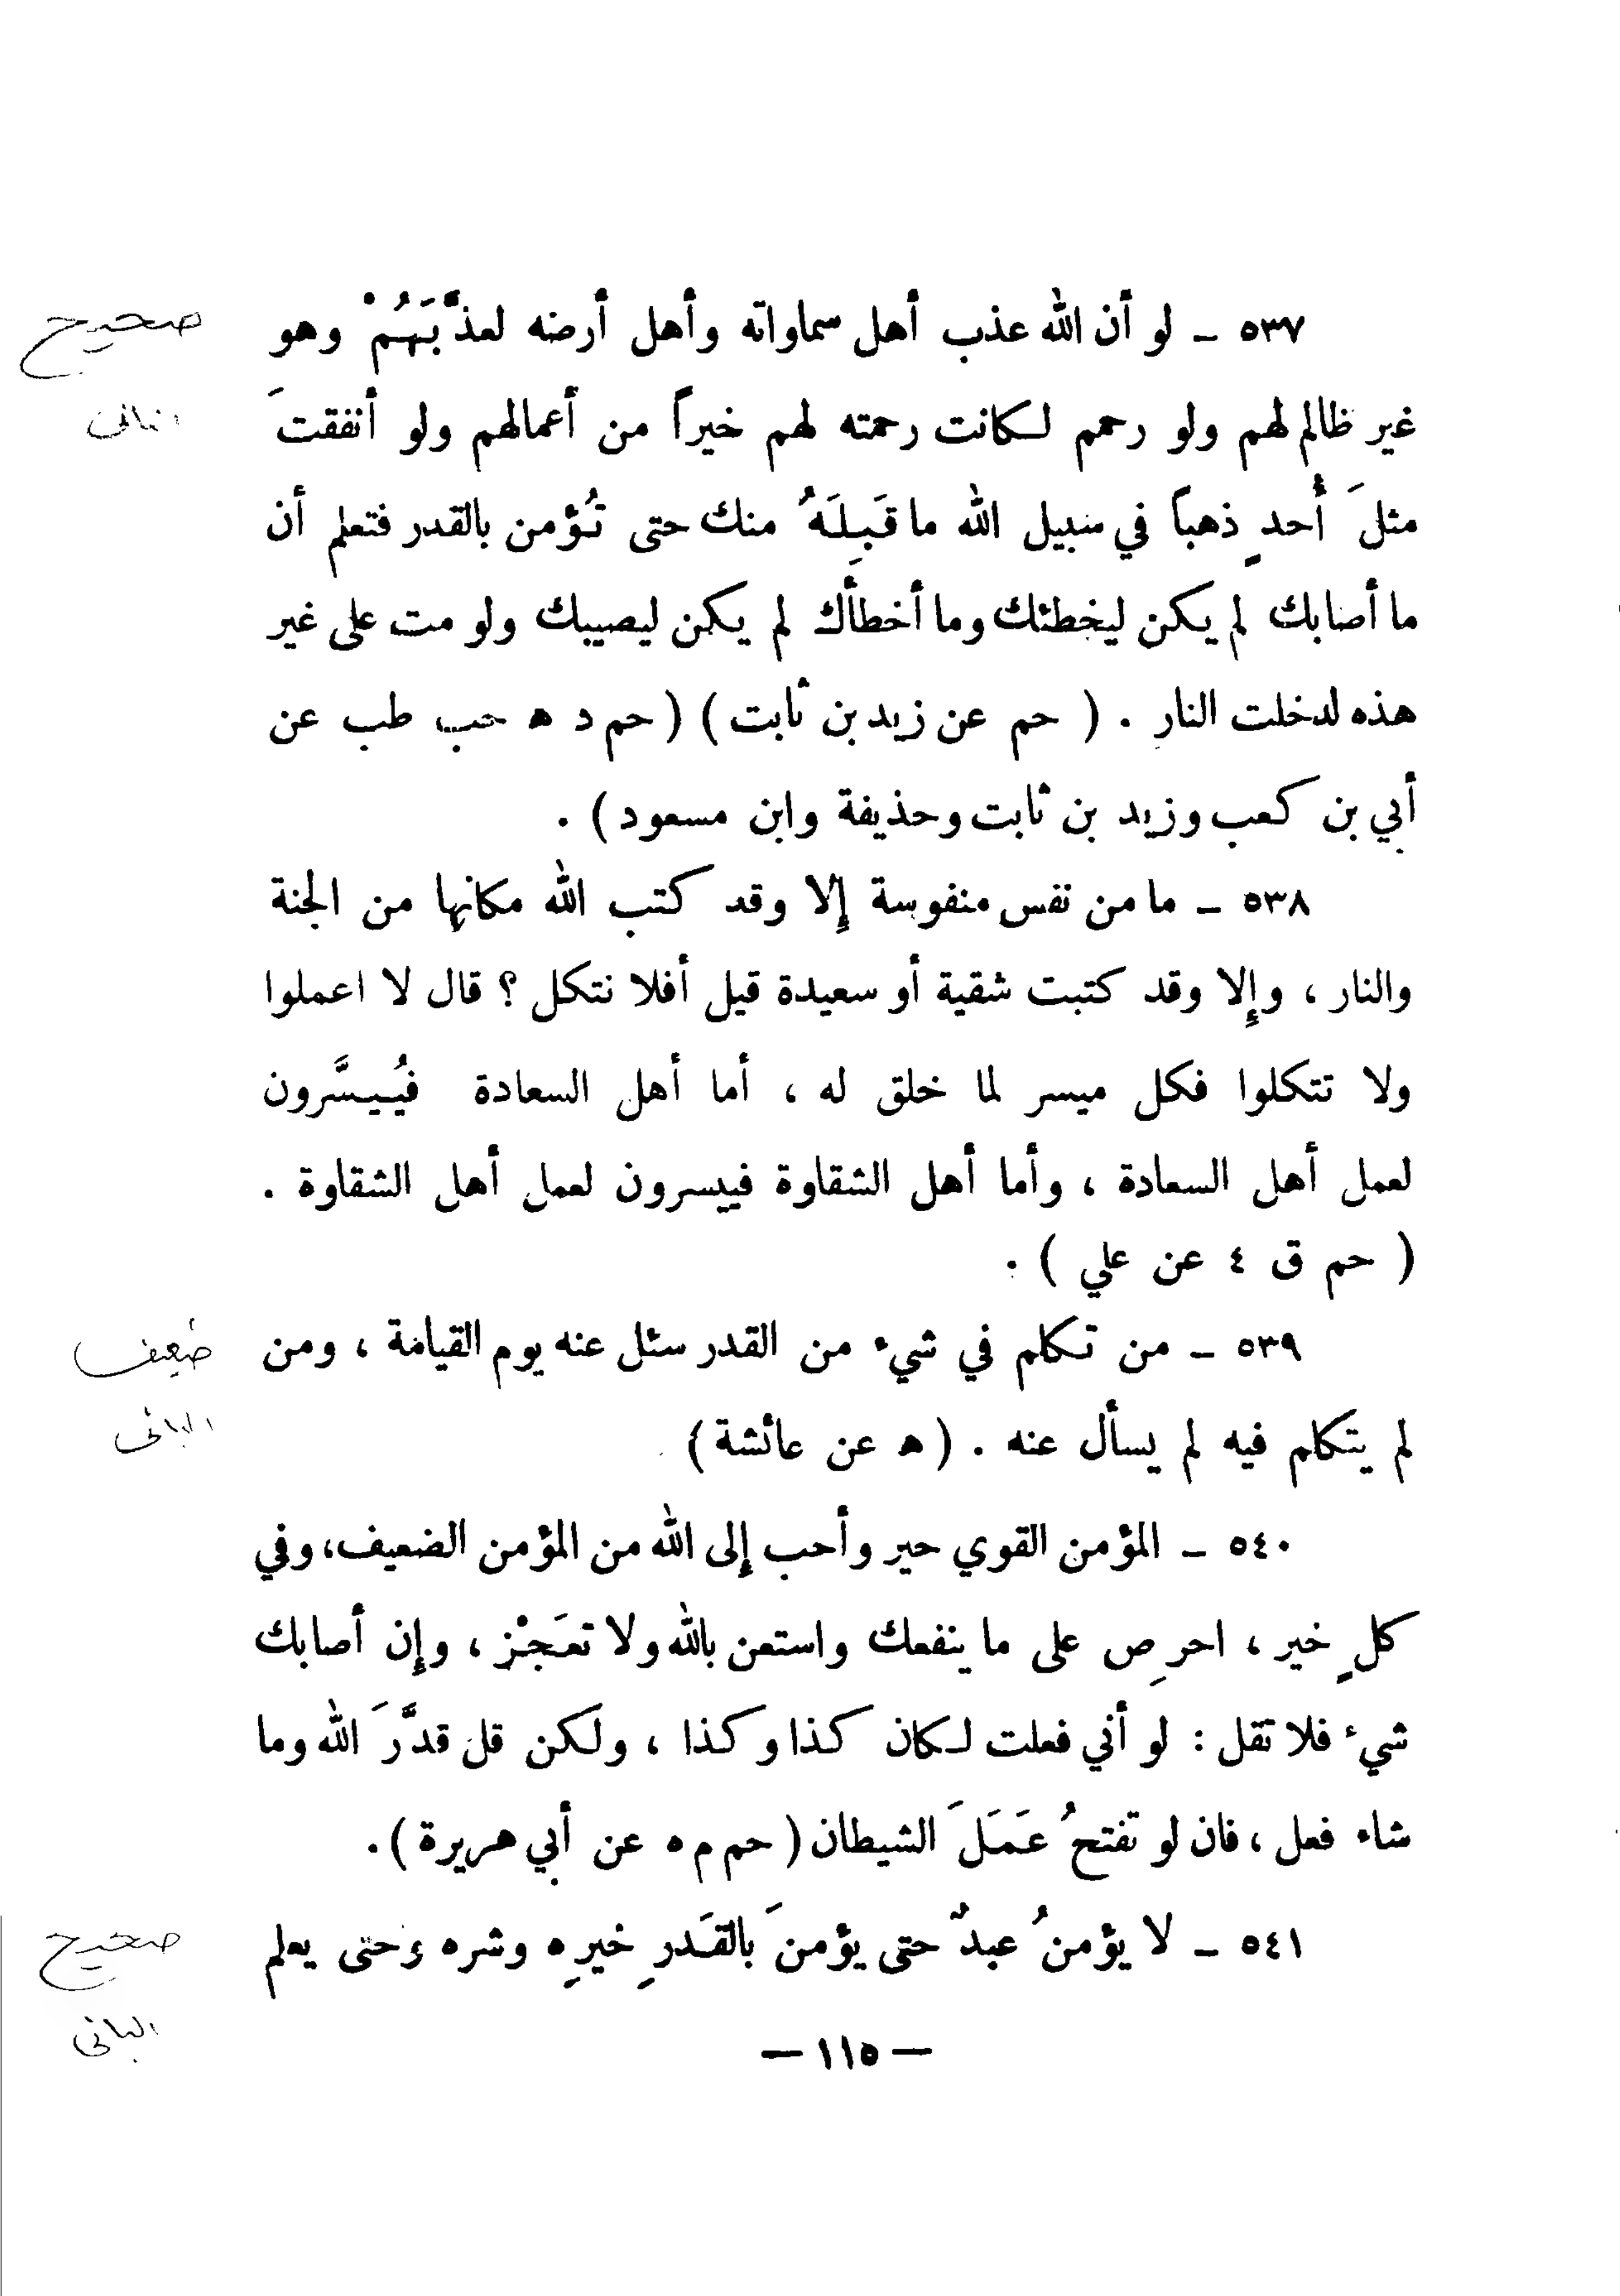 ٥٣٧ ـ لو أن الله عذب أهل سماواته وأهل أرضه لعذَّبَهُمْ وهو
صحيح
غير ظالم لهم ولو رحمهم لكانت رحمته لهم خيراً من أعمالهم ولو أنفقتَ
مثلَ أُحدٍ ذهباً في سبيل الله ما قَبِلَهُ منك حتى تُؤمن بالقدر فتعلم أن
ما أصابك لم يكن ليخطئك وما أخطأك لم يكن ليصيبك ولو مت على غير
هذه لدخلت النار . ( حم عن زيد بن ثابت ) ( حم د ه حب طب عن
أبي بن كعب وزيد بن ثابت وحذيفة وابن مسعود ) .
٥٣٨ ـ ما من نفس منفوسة إلا وقد كتب الله مكانها من الجنة
والنار ، وإلا وقد كتبت شقية أو سعيدة قيل أفلا نتكل ؟ قال لا اعملوا
ولا تتكلوا فكل ميسر لما خلق له ، أما أهل السعادة فيُيسَّرون
لعمل أهل السعادة ، وأما أهل الشقاوة فييسرون لعمل أهل الشقاوة .
( حم ق ٤ عن علي ) .
٥٣٩ ـ من تكلم في شيء من القدر سئل عنه يوم القيامة ، ومن
ضعيف
لم يتكلم فيه لم يسأل عنه . ( ه عن عائشة )
البانى
٥٤٠ ـ المؤمن القوي حير وأحب إلى الله من المؤمن الضعيف، وفي
كلٍ خير ، احرِص على ما ينفعك واستعن بالله ولا تعجَزْ ، وإن أصابك
شيء فلا تقل : لو أني فعلت لكان كذا وكذا ، ولكن قل قدَّرَ الله وما
شاء فعل ، فان لو تفتحُ عَمَلَ الشيطان ( حم م ه عن أبي هريرة ) .
٥٤١ ـ لا يؤمنُ عبدٌ حتى يؤمنَ بالقَدرِ خيرِه وشره وحتى يعلم
صحيح
البانى
— ١١٥ —